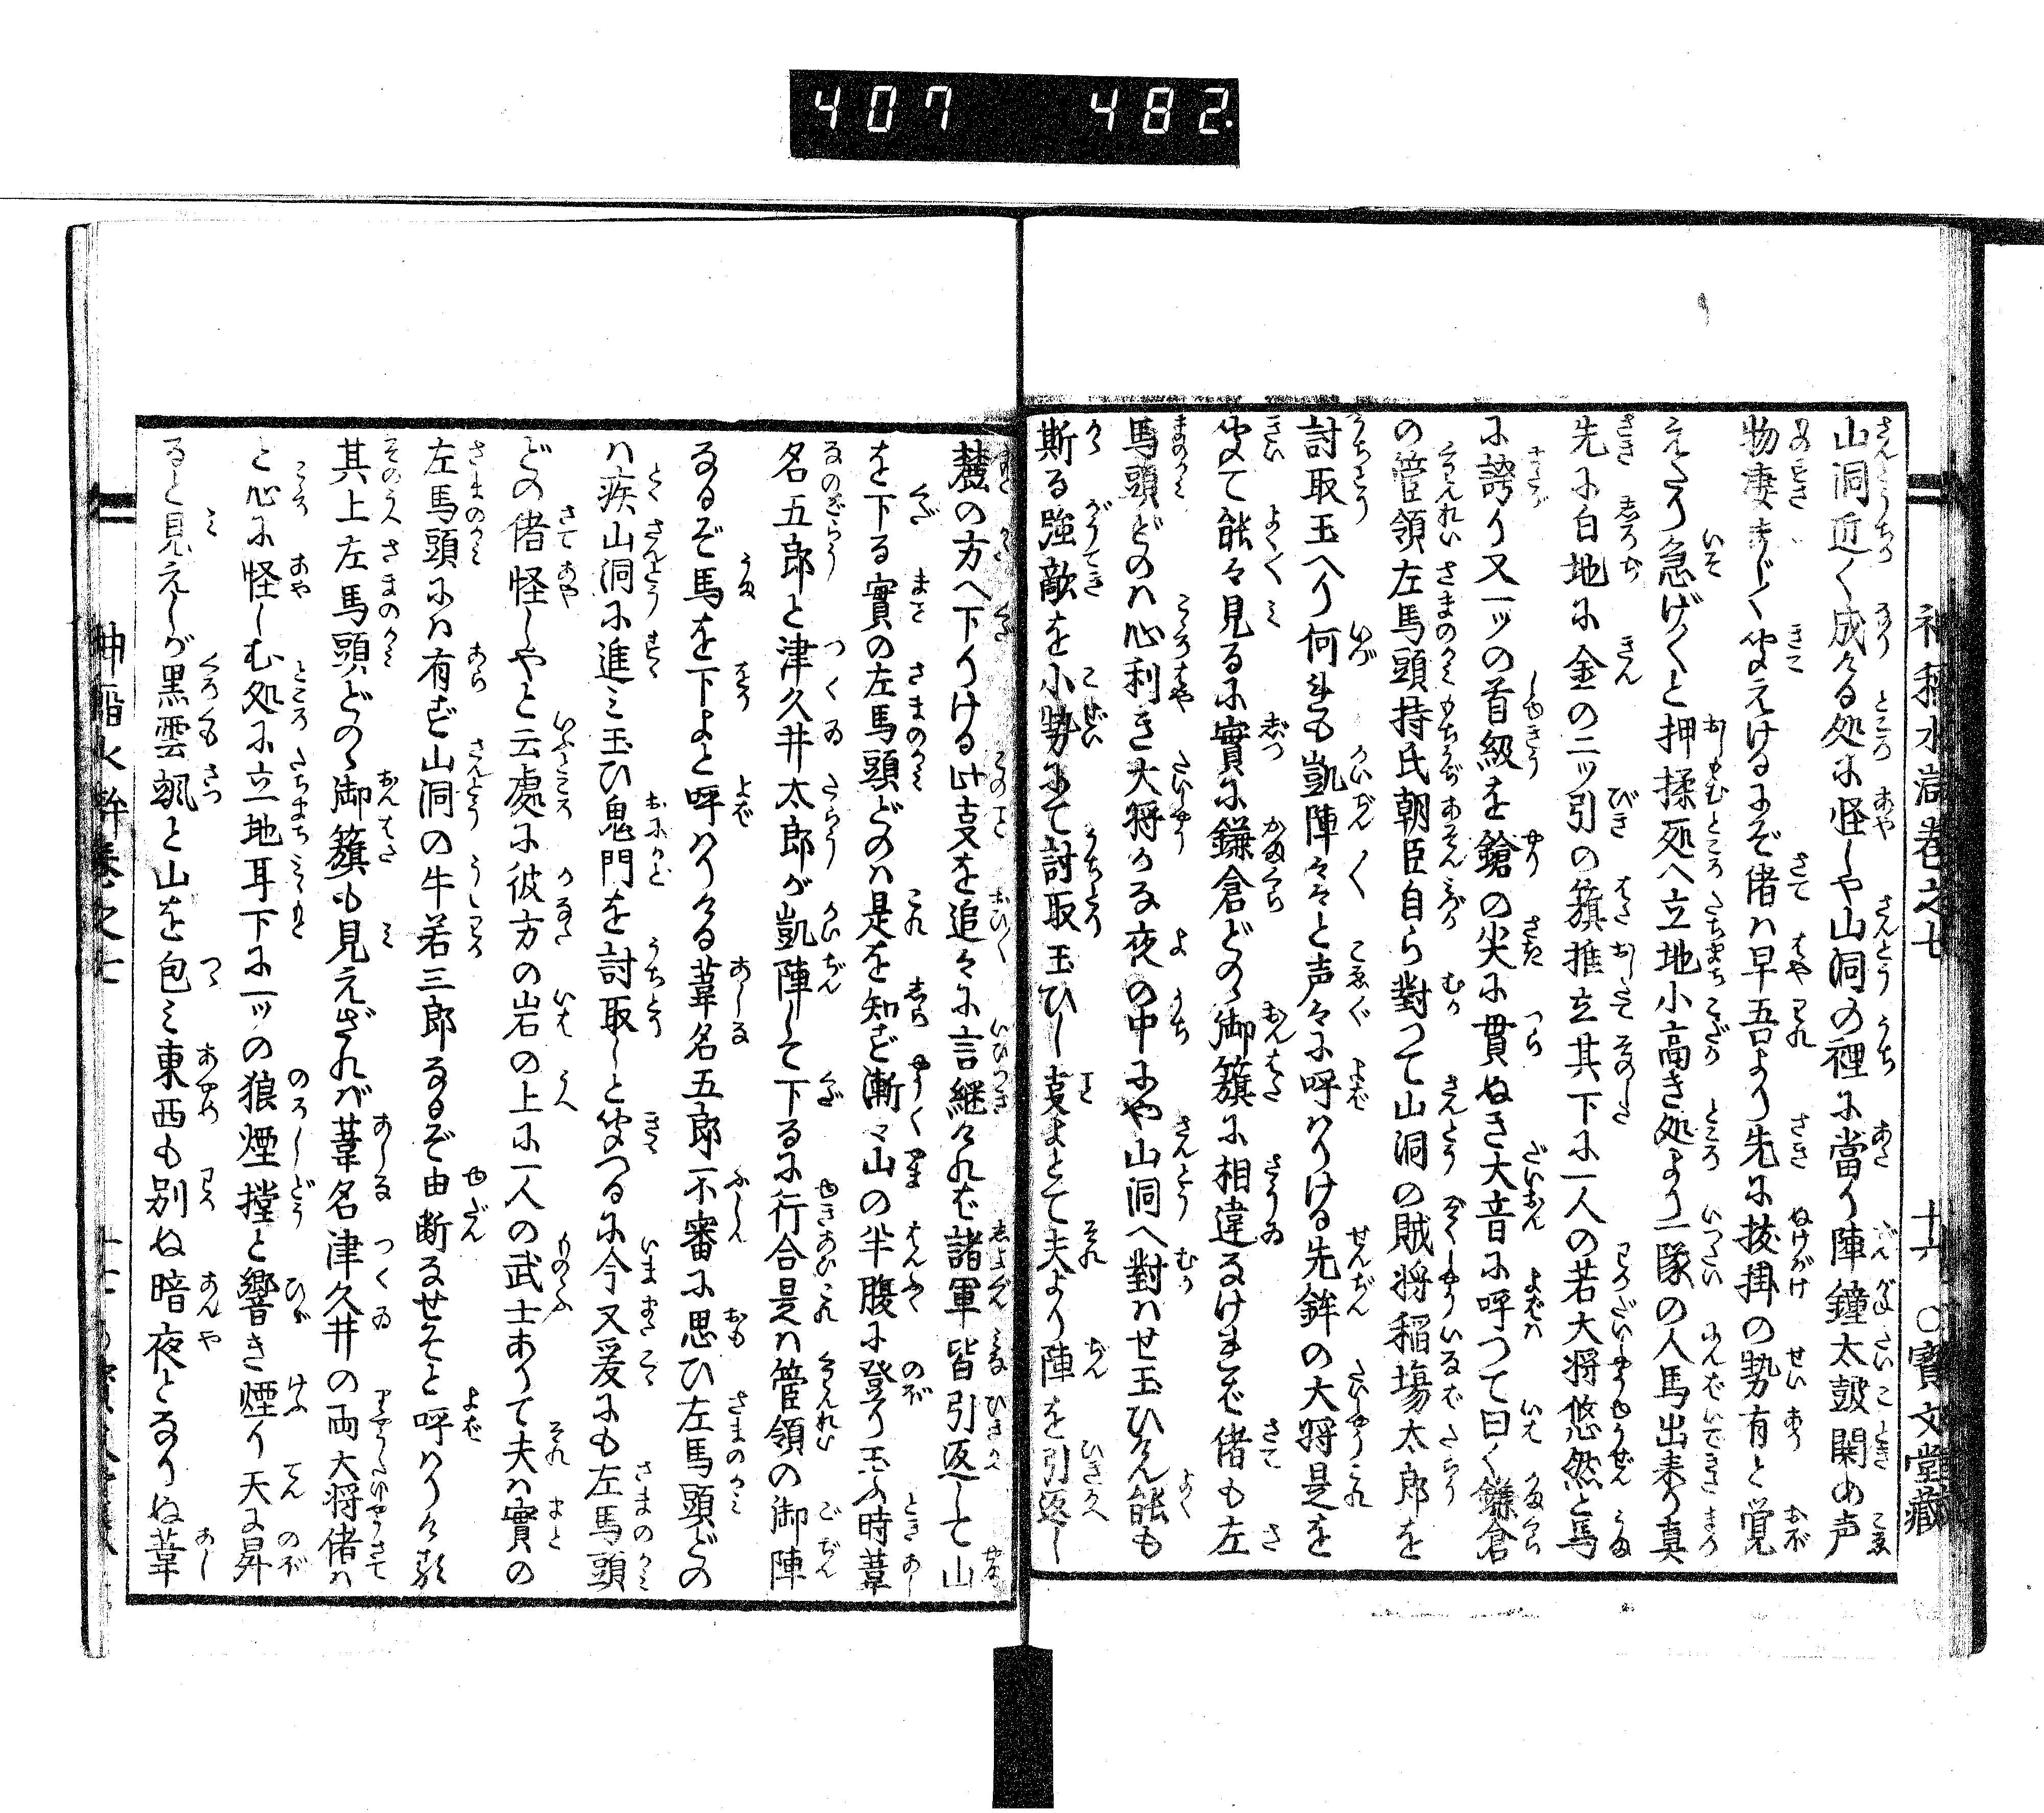 407 482.
山洞近く成ける処に怪しや山洞の裡に當り陣鐘太皷閧の声
物凄まじく聞えけるにぞ偖は早吾より先に抜掛の勢有と覚
えたり急げ〱と押揉処へ立地小高き処より一隊の人馬出来り真
先に白地に金の二ッ引の籏推立其下に一人の若大将悠然と馬
に誇り又一ッの首級を鎗の尖に貫ぬき大音に呼つて曰く鎌倉
の管領左馬頭持氏朝臣自ら對つて山洞の賊将稲塲太郎を
討取玉へり何れも凱陣〻〻と声〻に呼はりける先鉾の大将是を
聞て能〻見るに實に鎌倉どのゝ御籏に相違なければ偖も左
馬頭どのは心利き大将かな夜の中にや山洞へ對はせ玉ひけん能も
斯る強敵を小勢にて討取玉ひし事よとて夫より陣を引返し
麓の方へ下りける此事を追〻に言継ければ諸軍皆引返して山
を下る實の左馬頭どのは是を知ず漸〻山の半腹に登り玉ふ時葦
名五郎と津久井太郎が凱陣して下るに行合是は管領の御陣
なるぞ馬を下よと呼はりける葦名五郎不審に思ひ左馬頭どの
は疾山洞に進ミ玉ひ鬼門を討取しと聞つるに今又爰にも左馬頭
どの偖怪しやと云處に彼方の岩の上に一人の武士ありて夫は實の
左馬頭には有ず山洞の牛若三郎なるぞ由断なせそと呼はりける
其上左馬頭どのゝ御籏も見えざれバ葦名津久井の両大将偖は
と心に怪しむ処に立地耳下に一ッの狼煙撞と響き煙り天に昇
ると見えしが黒雲颯と山を包ミ東西も別ぬ暗夜となりぬ葦
水滸巻之七 十六 ○寳文堂藏